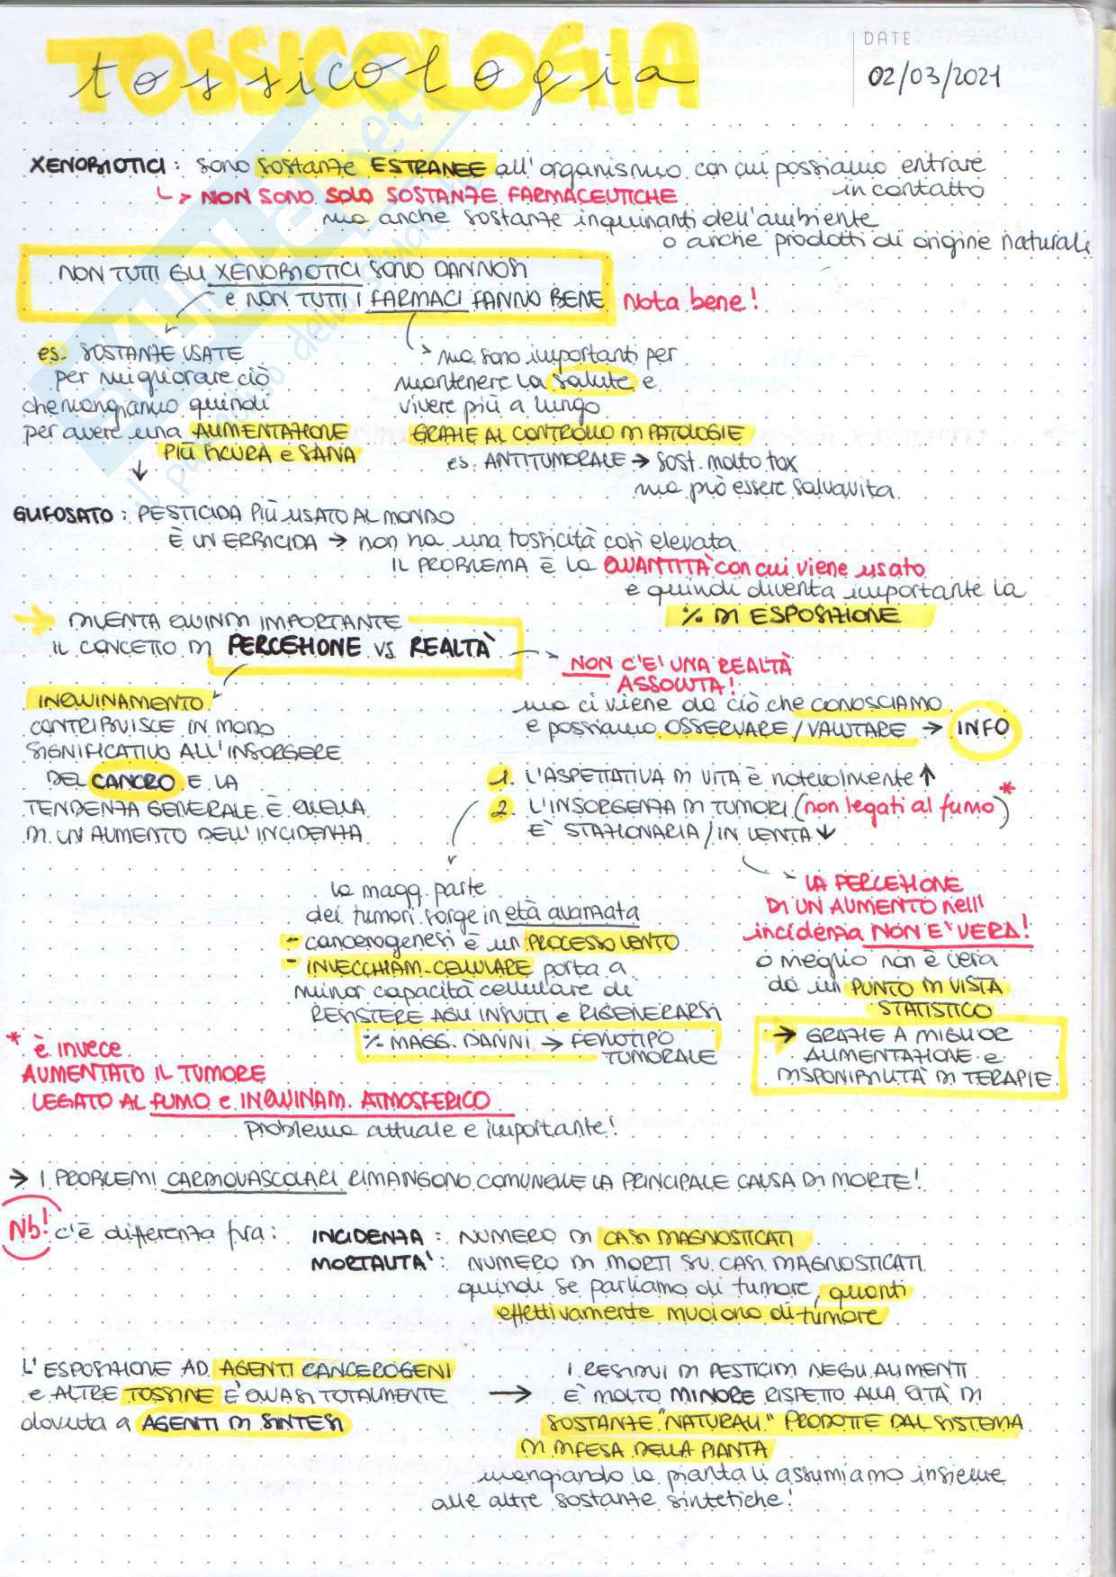 TOSSICOLOGIA
tossicologia
DATE
02/03/2021
XENOBIOTICI: sono sostanze ESTRANEE all'organismo con cui possiamo entrare
in contatto
↳> NON SONO SOLO SOSTANZE FARMACEUTICHE
ma anche sostanze inquinanti dell'ambiente
o anche prodotti di origine naturali
NON TUTTI GLI XENOBIOTICI SONO DANNOSI
e NON TUTTI I FARMACI FANNO BENE
Nota bene!
es. SOSTANZE USATE
per migliorare ciò
che mangiamo quindi
per avere una ALIMENTAZIONE
PIÙ SICURA e SANA
↓
ma sono importanti per
mantenere la salute e
vivere più a lungo
GRAZIE AL CONTROLLO DI PATOLOGIE
es. ANTITUMORALE → sost. molto tox
ma può essere salvavita
GLIFOSATO: PESTICIDA PIÙ USATO AL MONDO
È UN ERBICIDA → non ha una tossicità così elevata
IL PROBLEMA È la QUANTITÀ con cui viene usato
e quindi diventa importante la
% DI ESPOSIZIONE
→ DIVENTA QUINDI IMPORTANTE
IL CONCETTO DI PERCEZIONE VS REALTÀ
NON C'E' UNA REALTÀ
ASSOLUTA!
ma ci viene da ciò che CONOSCIAMO
e possiamo OSSERVARE/VALUTARE → INFO
INQUINAMENTO
CONTRIBUISCE IN MODO
SIGNIFICATIVO ALL'INSORGERE
DEL CANCRO E LA
TENDENZA GENERALE È QUELLA
DI UN AUMENTO DELL'INCIDENZA
1. L'ASPETTATIVA DI VITA è notevolmente ↑
2. L'INSORGENZA DI TUMORI (non legati al fumo)*
E' STAZIONARIA/IN LENTA ↓
la magg. parte
dei tumori sorge in età avanzata
- cancerogenesi è un PROCESSO LENTO
- INVECCHIAM. CELLULARE porta a
minor capacità cellulare di
RESISTERE AGLI INSULTI e RIGENERARSI
% MAGG. DANNI → FENOTIPO
TUMORALE
LA PERCEZIONE
DI UN AUMENTO nell'
incidenza NON E' VERA!
o meglio non è vera
da un PUNTO DI VISTA
STATISTICO
→ GRAZIE A MIGLIOR
ALIMENTAZIONE e
DISPONIBILITA' DI TERAPIE
* è invece
AUMENTATO IL TUMORE
LEGATO AL FUMO e INQUINAM. ATMOSFERICO
problema attuale e importante!
→ I PROBLEMI CARDIOVASCOLARI RIMANGONO COMUNQUE LA PRINCIPALE CAUSA DI MORTE!
Nb! c'è differenza fra: INCIDENZA: NUMERO DI CASI DIAGNOSTICATI
MORTALITA': NUMERO DI MORTI SU CASI DIAGNOSTICATI
quindi se parliamo di tumore, quanti
effettivamente muoiono di tumore
L'ESPOSIZIONE AD AGENTI CANCEROGENI
e ALTRE TOSSINE E' QUASI TOTALMENTE
dovuta a AGENTI DI SINTESI
→ I RESIDUI DI PESTICIDI NEGLI ALIMENTI
E' MOLTO MINORE RISPETTO ALLA QTA' DI
SOSTANZE "NATURALI" PRODOTTE DAL SISTEMA
DI DIFESA DELLA PIANTA
mangiando la pianta li assumiamo insieme
alle altre sostanze sintetiche!